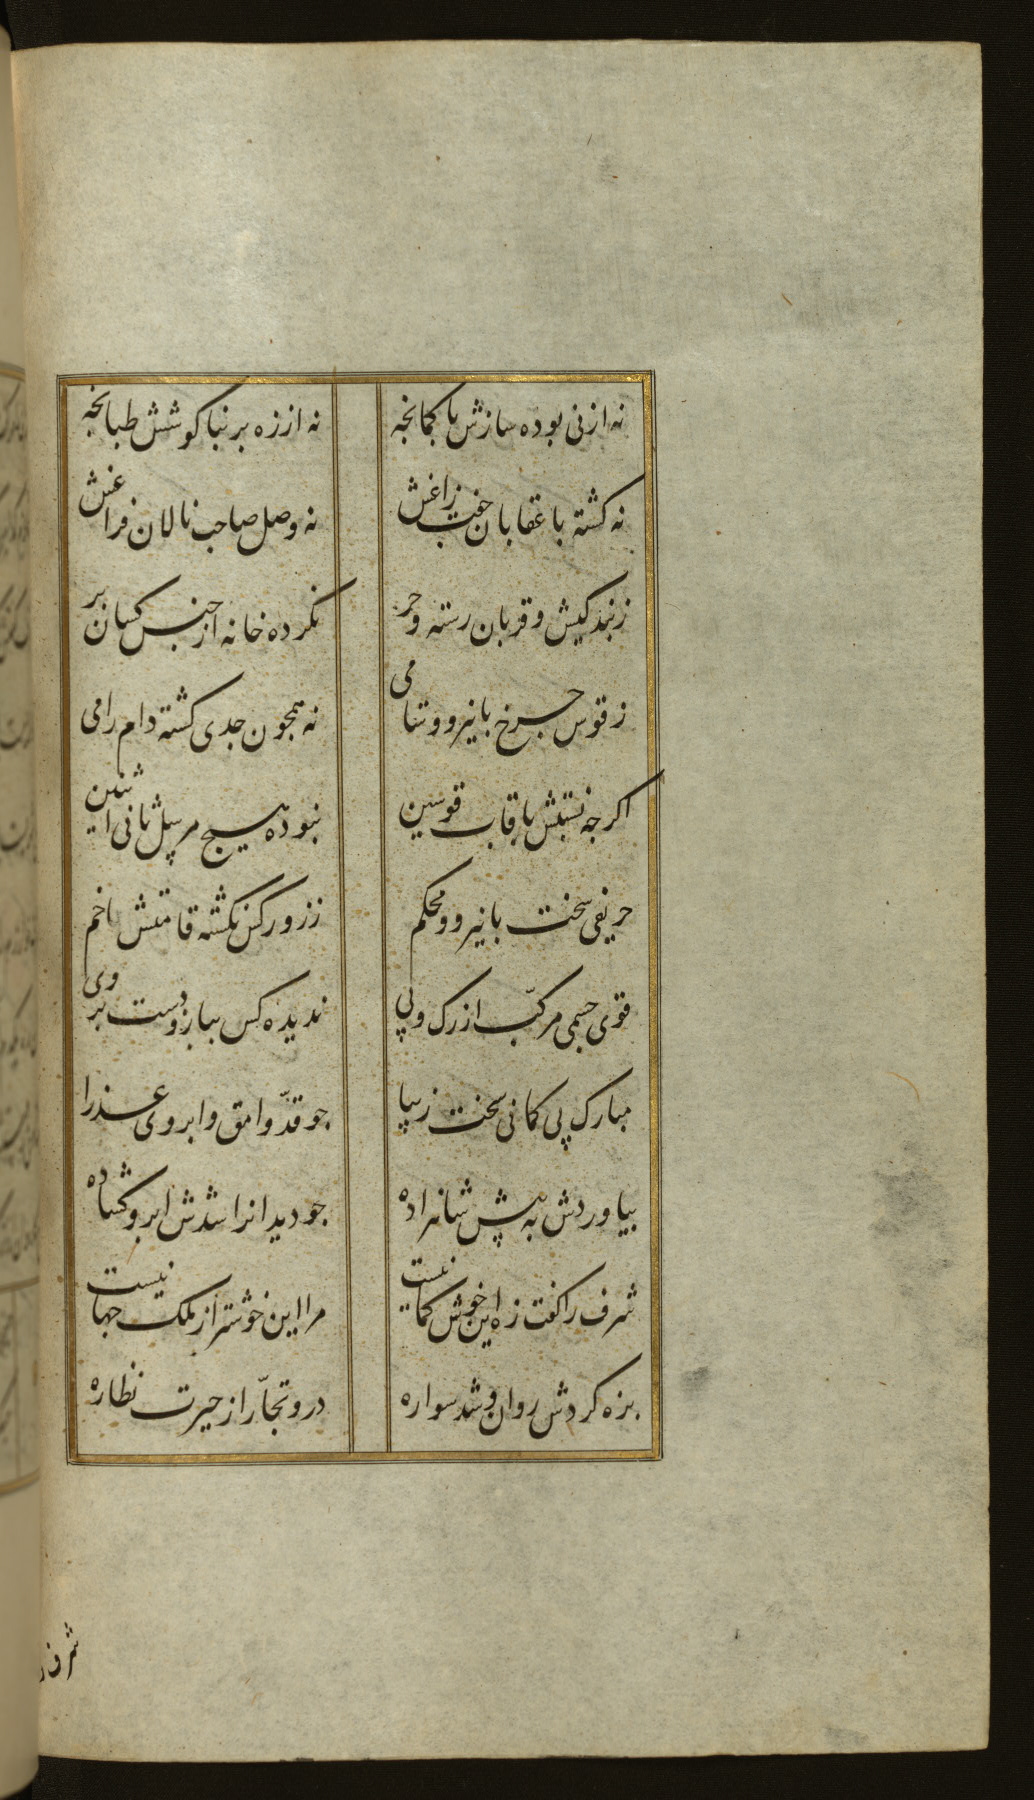 نه از نی بوده سازش با کمانجه نه از زه بر بناکوشش طبانجه
نه کشته با عقابان جفت زاغش نه وصل صاحب نالان فراغش
زبند کیش و قربان رسته و حر نکرده خانه از جنس کسان بر
ز قوس جرخ بانیرو و تنامی نه همجون جدی کشته دام رامی
اکر جه نسبتش با قاب قوسین نبوده هیج مرسل ثانی اثنین
حریفی سخت بانیرو و محکم ز زور کس نکشته قامتش خم
قوی جسمی مرکّب از رک و پی ندیده کس ببازو دست بر وی
مبارک پی کمانی سخت زیبا جو قدّ وامق و ابروی عذرا
بیاوردش به پیش شاهزاده جو دید انرا شدش ابرو کشاده
شرف را کفت زه این خوش کمانیست مرا این خوشتر از ملک جهانیست
بزه کردش روان و شد سواره درو تجّار از حیرت نظاره
شرف